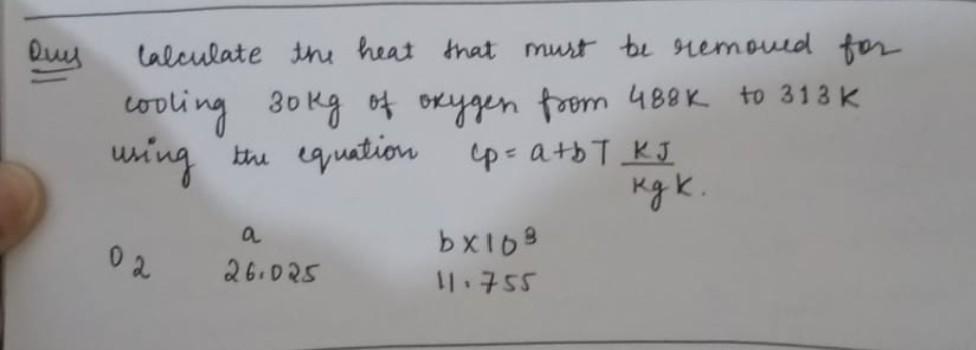 Ques Calculate the heat that must be removed for
cooling 30 Kg of oxygen from 488K to 313K
using the equation Cp = a+bT KJ/Kg K.
a b×10³
O2 26.025 11.755